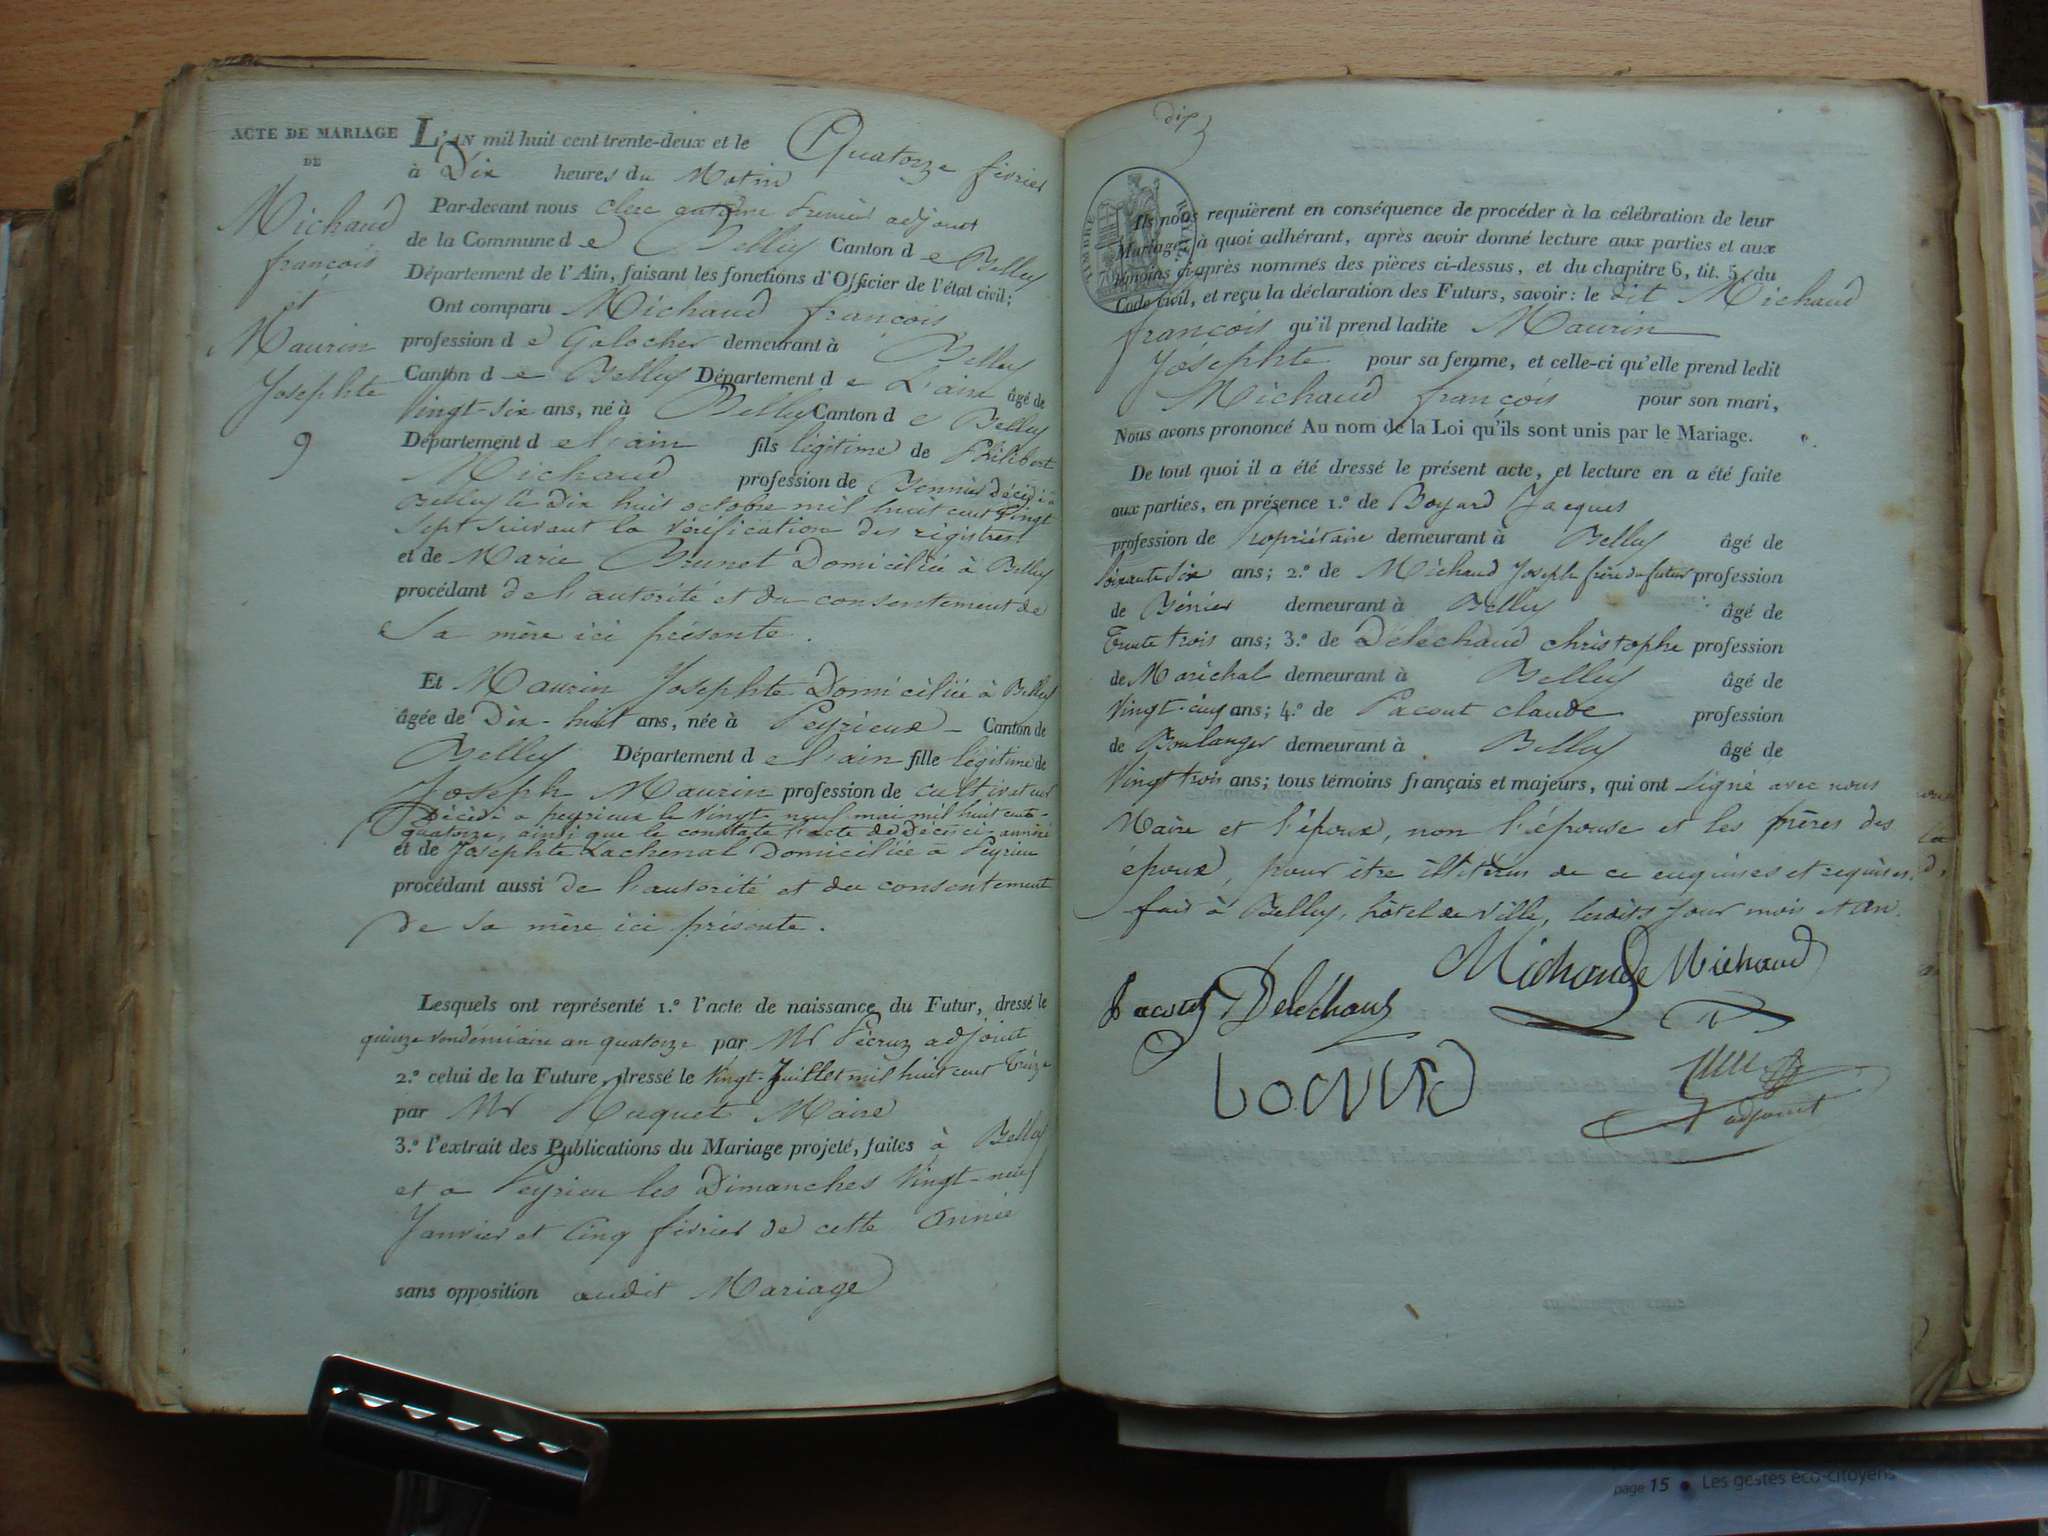 ACTE DE MARIAGE
DE
Michaud
françois
et
Maurin
Josephte
9
L'AN mil huit cent trente-deux et le Quatorze février
à Dix heures du Matin
Par-devant nous Clerc antoine Premier adjoint
de la Commune de Belley Canton de Belley
Département de l'Ain, faisant les fonctions d'Officier de l'état civil;
Ont comparu Michaud françois
profession de Galocher demeurant à Belley
Canton de Belley Département de L'ain âgé de
Vingt-six ans, né à Belley Canton de Belley
Département de l'ain fils légitime de Philibert
Michaud profession de Bennier décédé à
Belley le Dix huit octobre mil huit cent Vingt
Sept suivant la vérification des registres
et de Marie Brunet Domiciliée à Belley
procédant de l'autorité et du consentement de
Sa mère ici présente.
Et Maurin Josephte Domiciliée à Belley
âgée de Dix-huit ans, née à Peyrieux Canton de
Belley Département de l'ain fille légitime de
Joseph Maurin profession de cultivateur
Décédé à peyrieux le Vingt-neuf mai mil huit cent-
quatorze, ainsi que le constate l'acte de Décès ci-annéxé
et de Josephte Lachenal Domiciliée à Peyrieu
procédant aussi de l'autorité et du consentement
de Sa mère ici présente.
Lesquels ont représenté 1.° l'acte de naissance du Futur, dressé le
quinze Vendémiaire an quatorze par Mr Pécruz adjoint
2.° celui de la Future, dressé le Vingt-Juillet mil huit cent Treize
par Mr Huguet Maire
3.° l'extrait des Publications du Mariage projeté, faites à Belley
et à Peyrieu les Dimanches Vingt-neuf
Janvier et Cinq février de cette Année
sans opposition audit Mariage
TIMBRE ROYAL
Ils nous requièrent en conséquence de procéder à la célébration de leur
Mariage, à quoi adhérant, après avoir donné lecture aux parties et aux
témoins ci-après nommés des pièces ci-dessus, et du chapitre 6, tit. 5, du
Code Civil, et reçu la déclaration des Futurs, savoir: le dit Michaud
françois qu'il prend ladite Maurin
Josephte pour sa femme, et celle-ci qu'elle prend ledit
Michaud françois pour son mari,
Nous avons prononcé Au nom de la Loi qu'ils sont unis par le Mariage.
De tout quoi il a été dressé le présent acte, et lecture en a été faite
aux parties, en présence 1.° de Boyard Jacques
profession de Propriétaire demeurant à Belley âgé de
Soixante Six ans; 2.° de Michaud Joseph frère du futur profession
de Bénier demeurant à Belley âgé de
Trente trois ans; 3.° de Déléchaud christophe profession
de Maréchal demeurant à Belley âgé de
Vingt-cinq ans; 4.° de Pacout claude profession
de Boulanger demeurant à Belley âgé de
Vingt trois ans; tous témoins français et majeurs, qui ont Signé avec nous
Maire et l'époux, non l'épouse et les mères des
époux, pour être illitérés de ce enquises et requises.
fait à Belley, hôtel de Ville, lesdits Jour mois et an.
Michaud Michaud
Pacout Deléchaux
adjoint
page 15 • Les gestes éco-citoyens